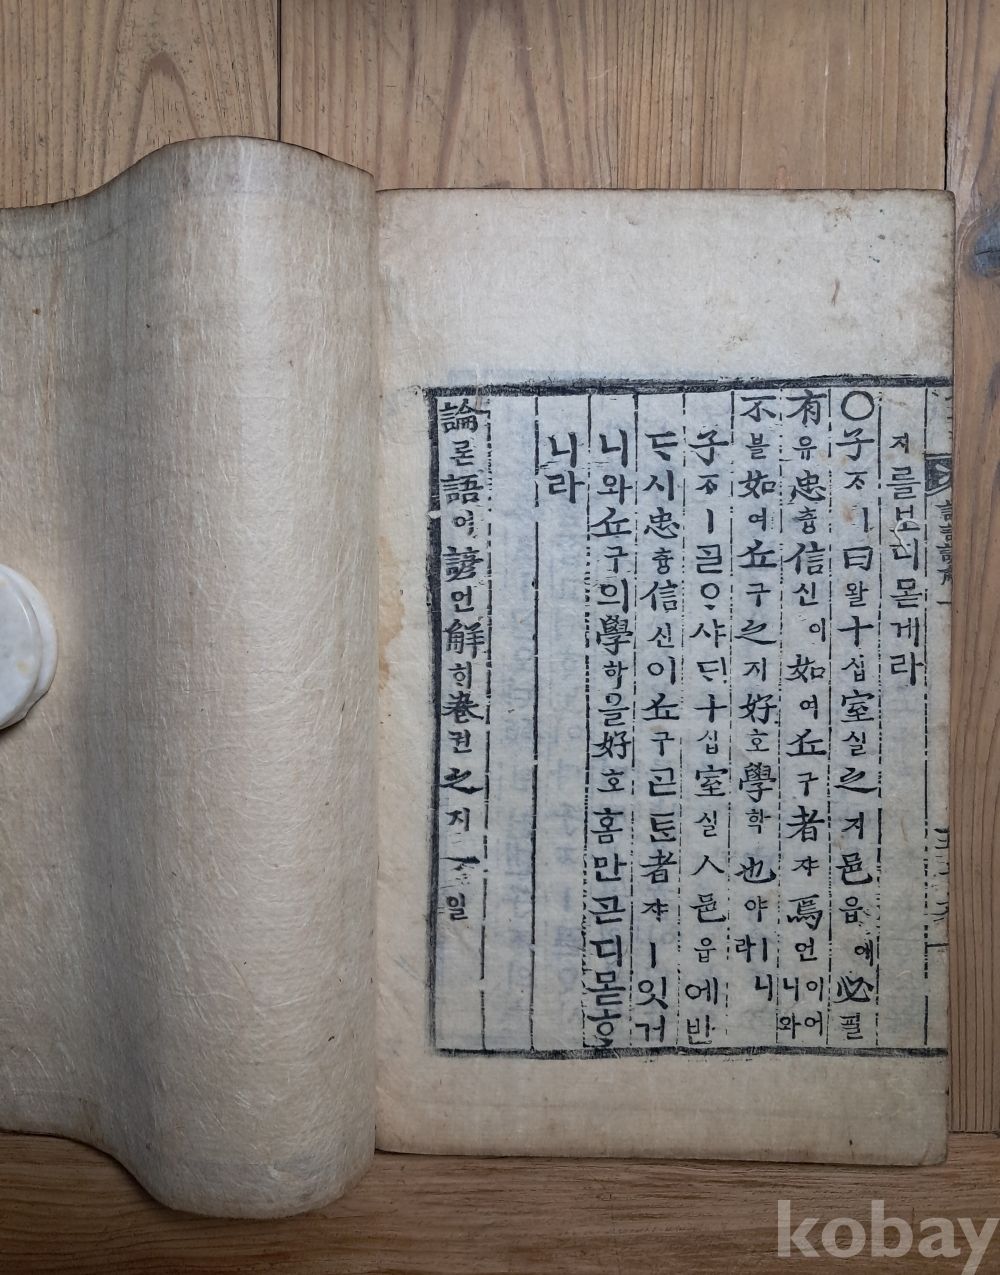 쟈를보디몯게라
○子ᄌᆞㅣ曰왈十십室실之지邑읍에必필
有유忠츙信신이如여丘구者쟈焉언이어니와
不블如여丘구之지好호學학也야ㅣ니라
子ᄌᆞㅣᄀᆞᆯᄋᆞ샤ᄃᆡ十십室실ㅅ邑읍에반
ᄃᆞ시忠츙信신이丘구ᄀᆞᆮᄐᆞᆫ者쟈ㅣ잇거
니와丘구의學학을好호홈만ᄀᆞᆮ디몯ᄒᆞ
니라
論론語어諺언解ᄒᆡ卷권之지一일
kobay